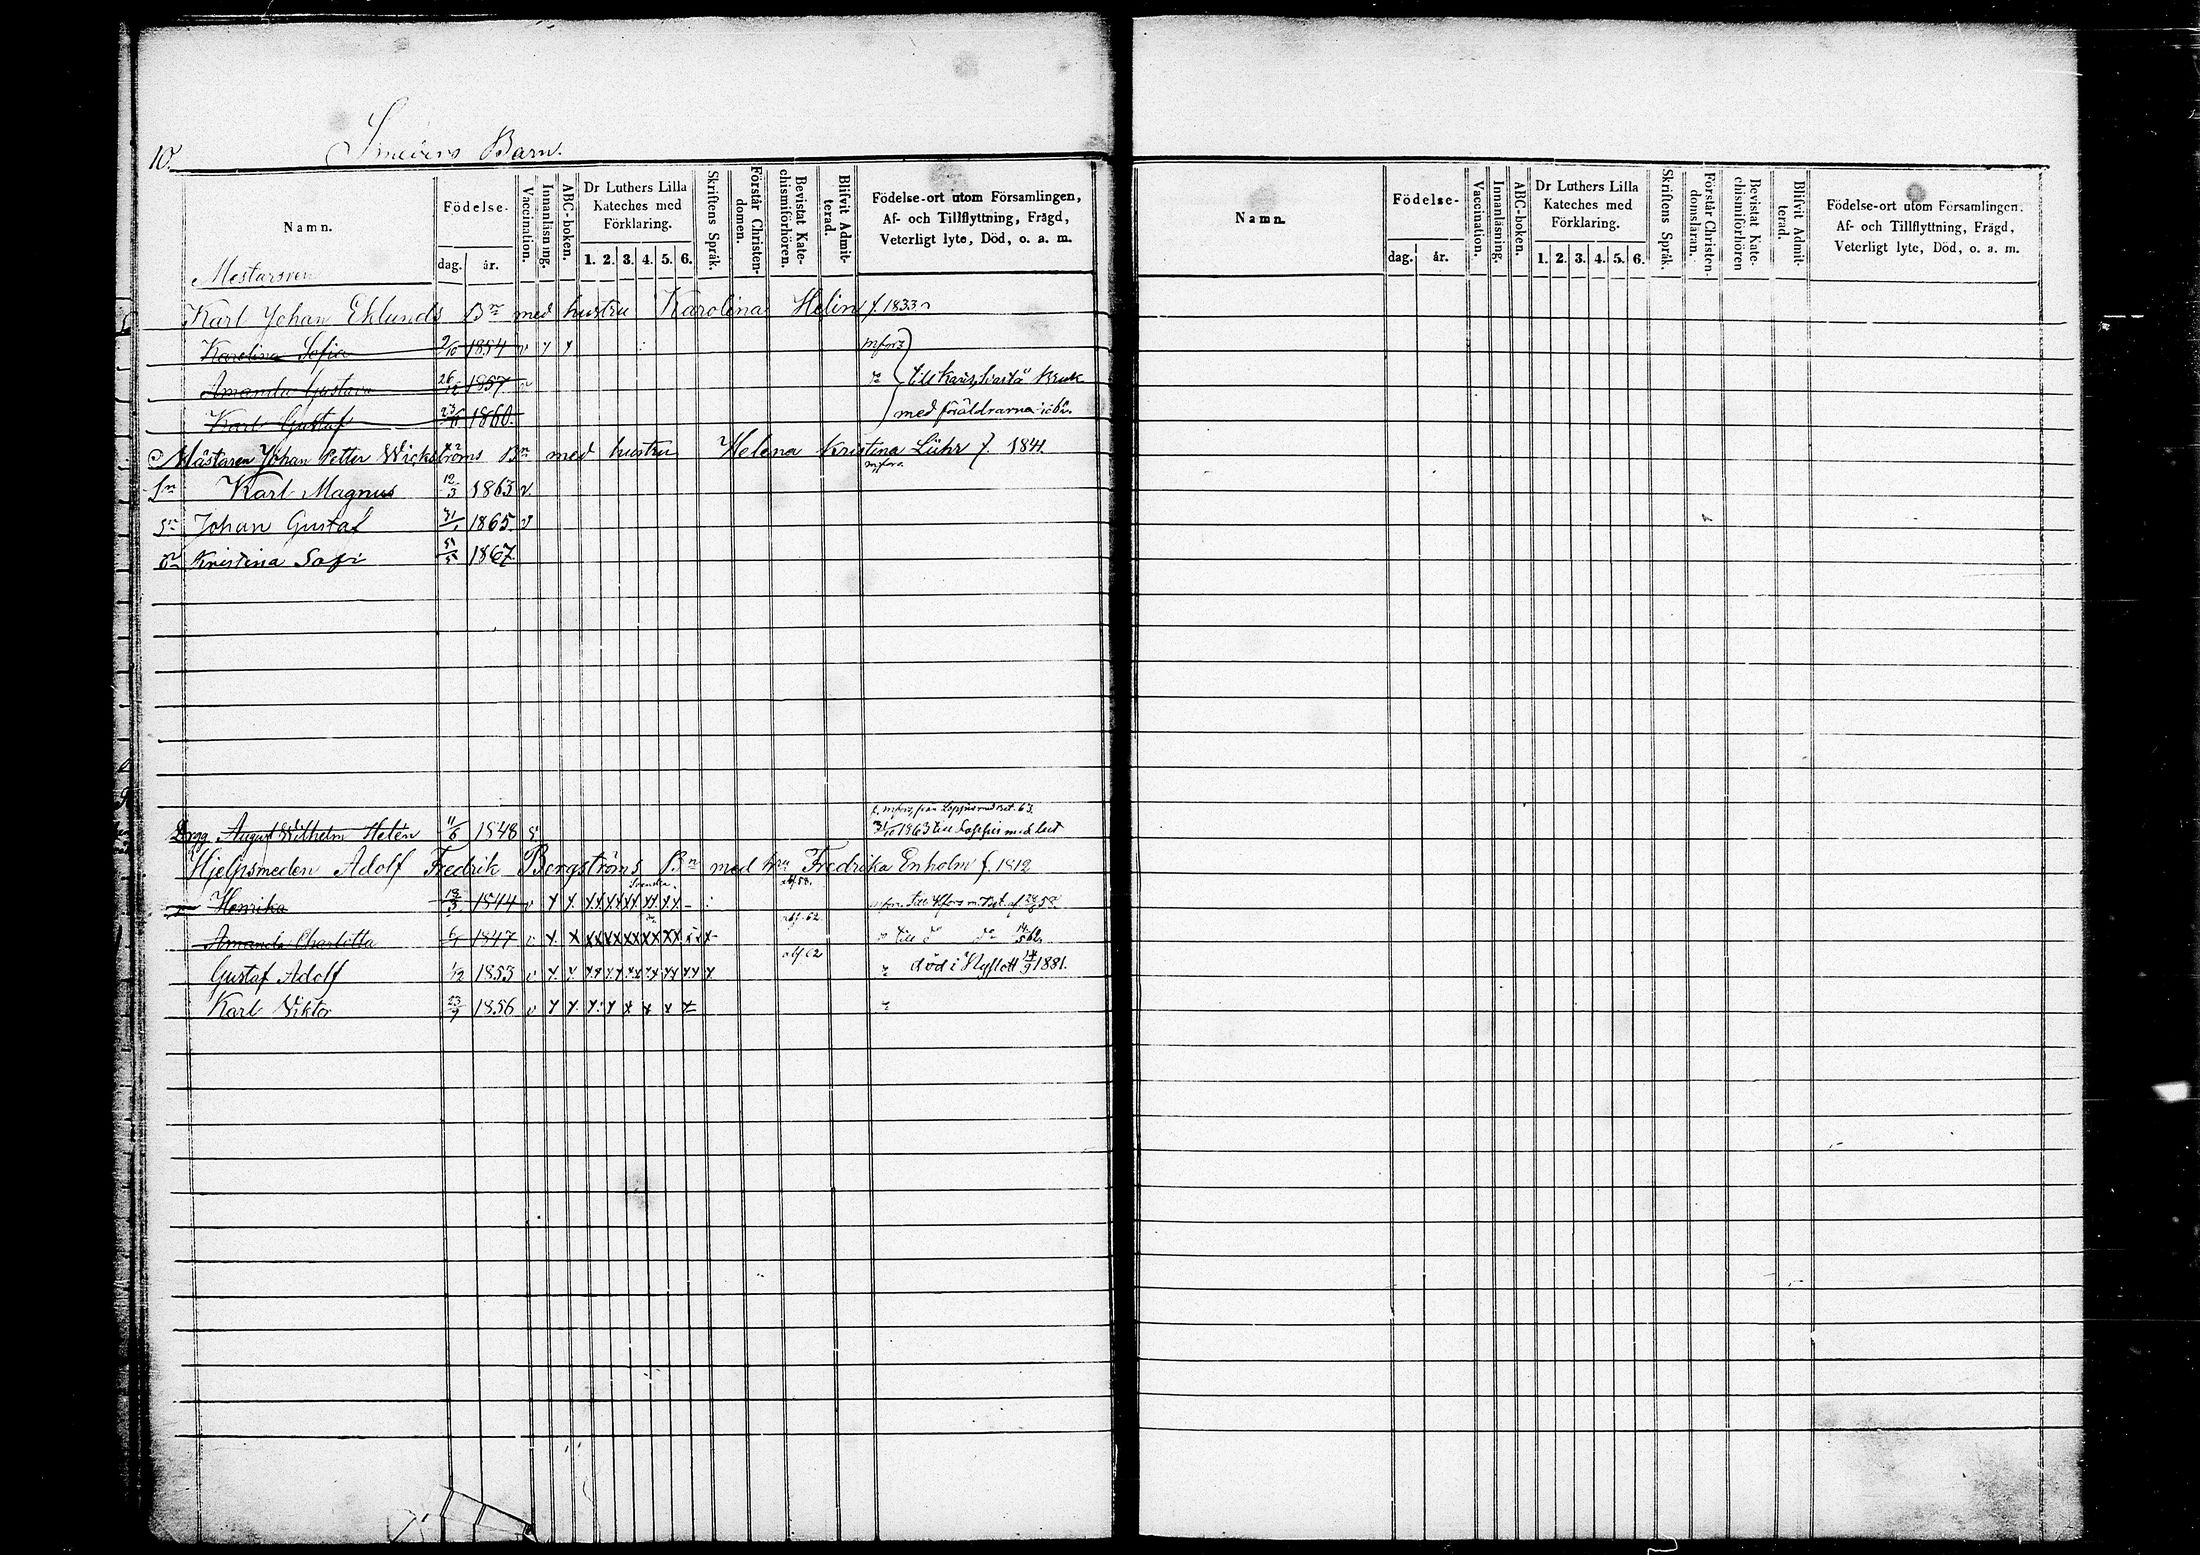 10.
Smeders Barn.
Namn.
Födelse-
dag. år.
Vaccination.
Innanläsning.
ABC-boken.
Dr Luthers Lilla
Kateches med
Förklaring.
1. 2. 3. 4. 5. 6.
Skriftens Språk.
Förstår Christen-
domen.
Bevistat Kate-
chismiförhören.
Blifvit Admit-
terad.
Födelse-ort utom Församlingen,
Af- och Tillflyttning, Frägd,
Veterligt lyte, Död, o. a. m.
Mestarsven
Karl Johan Eklunds Bn med hustru Karolina Helin f. 1833
Karolina Sofia 2/10 1854 v x x mforz
Amanda Gustava 26/12 1857 v till bruk
Karl Gustaf 1860 med föräldrarna
Mästaren Johan Petter Wickströms Bn med hustru Helena Kristina Lühr f. 1841.
Sn Karl Magnus 12/3 1863 v. mfors.
Sn Johan Gustaf 31/1 1865. v
Kristina Sofi 5/5 1867.
f. mforz, från Loppis med bet. 63.
Drgg August Wilhelm Helén 11/6 1848 31/10 1863 till Loppis med bet
Hjelpsmeden Adolf Fredrik Bergströms Bn med hru Fredrika Enholm f. 1812
Svenska. abf. 58.
Henrika 18/3 1844 v x x xx xx xx xx xx
Amanda Charlotta 6/1 1847 v x x xx xx xx xx xx abf. 62 till do do
Gustaf Adolf 1/12 1853 v x x xx xx xx xx xx xx x abf. 62 död i Nyslott 14/9 1881.
Karl Viktor 23/7 1856 v x x x x x x x x
Namn.
Födelse-
dag. år.
Vaccination.
Innanläsning.
ABC-boken.
Dr Luthers Lilla
Kateches med
Förklaring.
1. 2. 3. 4. 5. 6.
Skriftens Språk.
Förstår Christen-
domsläran.
Bevistat Kate-
chismiförhören
Blifvit Admit-
terad.
Födelse-ort utom Församlingen.
Af- och Tillflyttning, Frägd,
Veterligt lyte, Död, o. a. m.